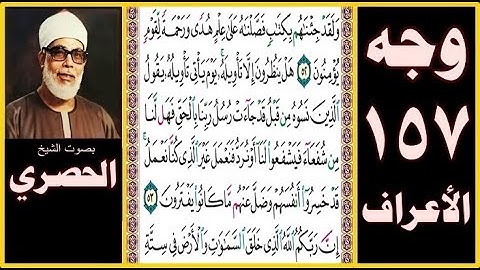 وجه
١٥٧
الأعراف
وَلَقَدْ جِئْنَٰهُم بِكِتَٰبٍ فَصَّلْنَٰهُ عَلَىٰ عِلْمٍ هُدًى وَرَحْمَةً لِّقَوْمٍ
يُؤْمِنُونَ ٥٢ هَلْ يَنظُرُونَ إِلَّا تَأْوِيلَهُۥ ۚ يَوْمَ يَأْتِى تَأْوِيلُهُۥ يَقُولُ
ٱلَّذِينَ نَسُوهُ مِن قَبْلُ قَدْ جَآءَتْ رُسُلُ رَبِّنَا بِٱلْحَقِّ فَهَل لَّنَا
مِن شُفَعَآءَ فَيَشْفَعُوا۟ لَنَآ أَوْ نُرَدُّ فَنَعْمَلَ غَيْرَ ٱلَّذِى كُنَّا نَعْمَلُ ۚ
قَدْ خَسِرُوٓا۟ أَنفُسَهُمْ وَضَلَّ عَنْهُم مَّا كَانُوا۟ يَفْتَرُونَ ٥٣
إِنَّ رَبَّكُمُ ٱللَّهُ ٱلَّذِى خَلَقَ ٱلسَّمَٰوَٰتِ وَٱلْأَرْضَ فِى سِتَّةِ
بصوت الشيخ
الحصري